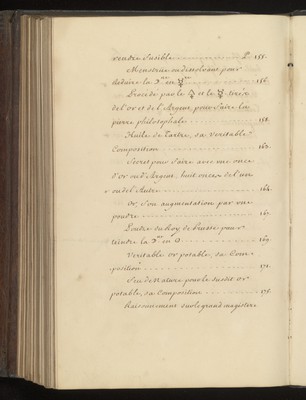 rendre fusible ............ P. 155.
Menstrue ou dissolvant pour
reduire la ☽ne en ☿re ............ 156.
Procedé par le 🜍 et le ☿ tirés
de l'or et de l'Argent, pour faire la
pierre philosophale ............ 158.
Huile de Tartre, sa Veritable
Composition ............ 163.
Secret pour faire avec une once
d'or ou d'Argent, huit onces de l'un
ou de l'Autre ............ 164.
Or, son augmentation par une
poudre ............ 167.
Poudre du Roy de Prusse pour
teindre la ☽ne en ☉ ............ 169.
Veritable or potable, sa Com=
position ............ 171.
Feu de Nature pour le susdit or
potable, sa Composition ............ 175.
Raisonnement sur le grand magistere